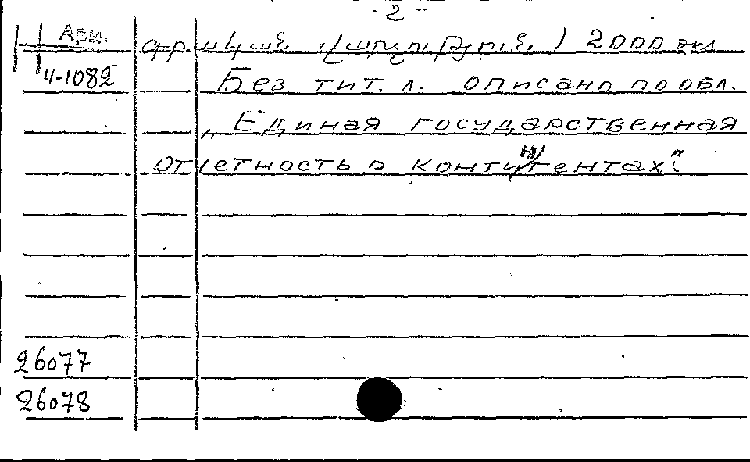 - 2 -
Арм.
գրական վարչություն ) 2000 экз
4-1082 Без тит. л. описано по обл.
„Единая государственная
отчетность о контингентах“
26077
26078